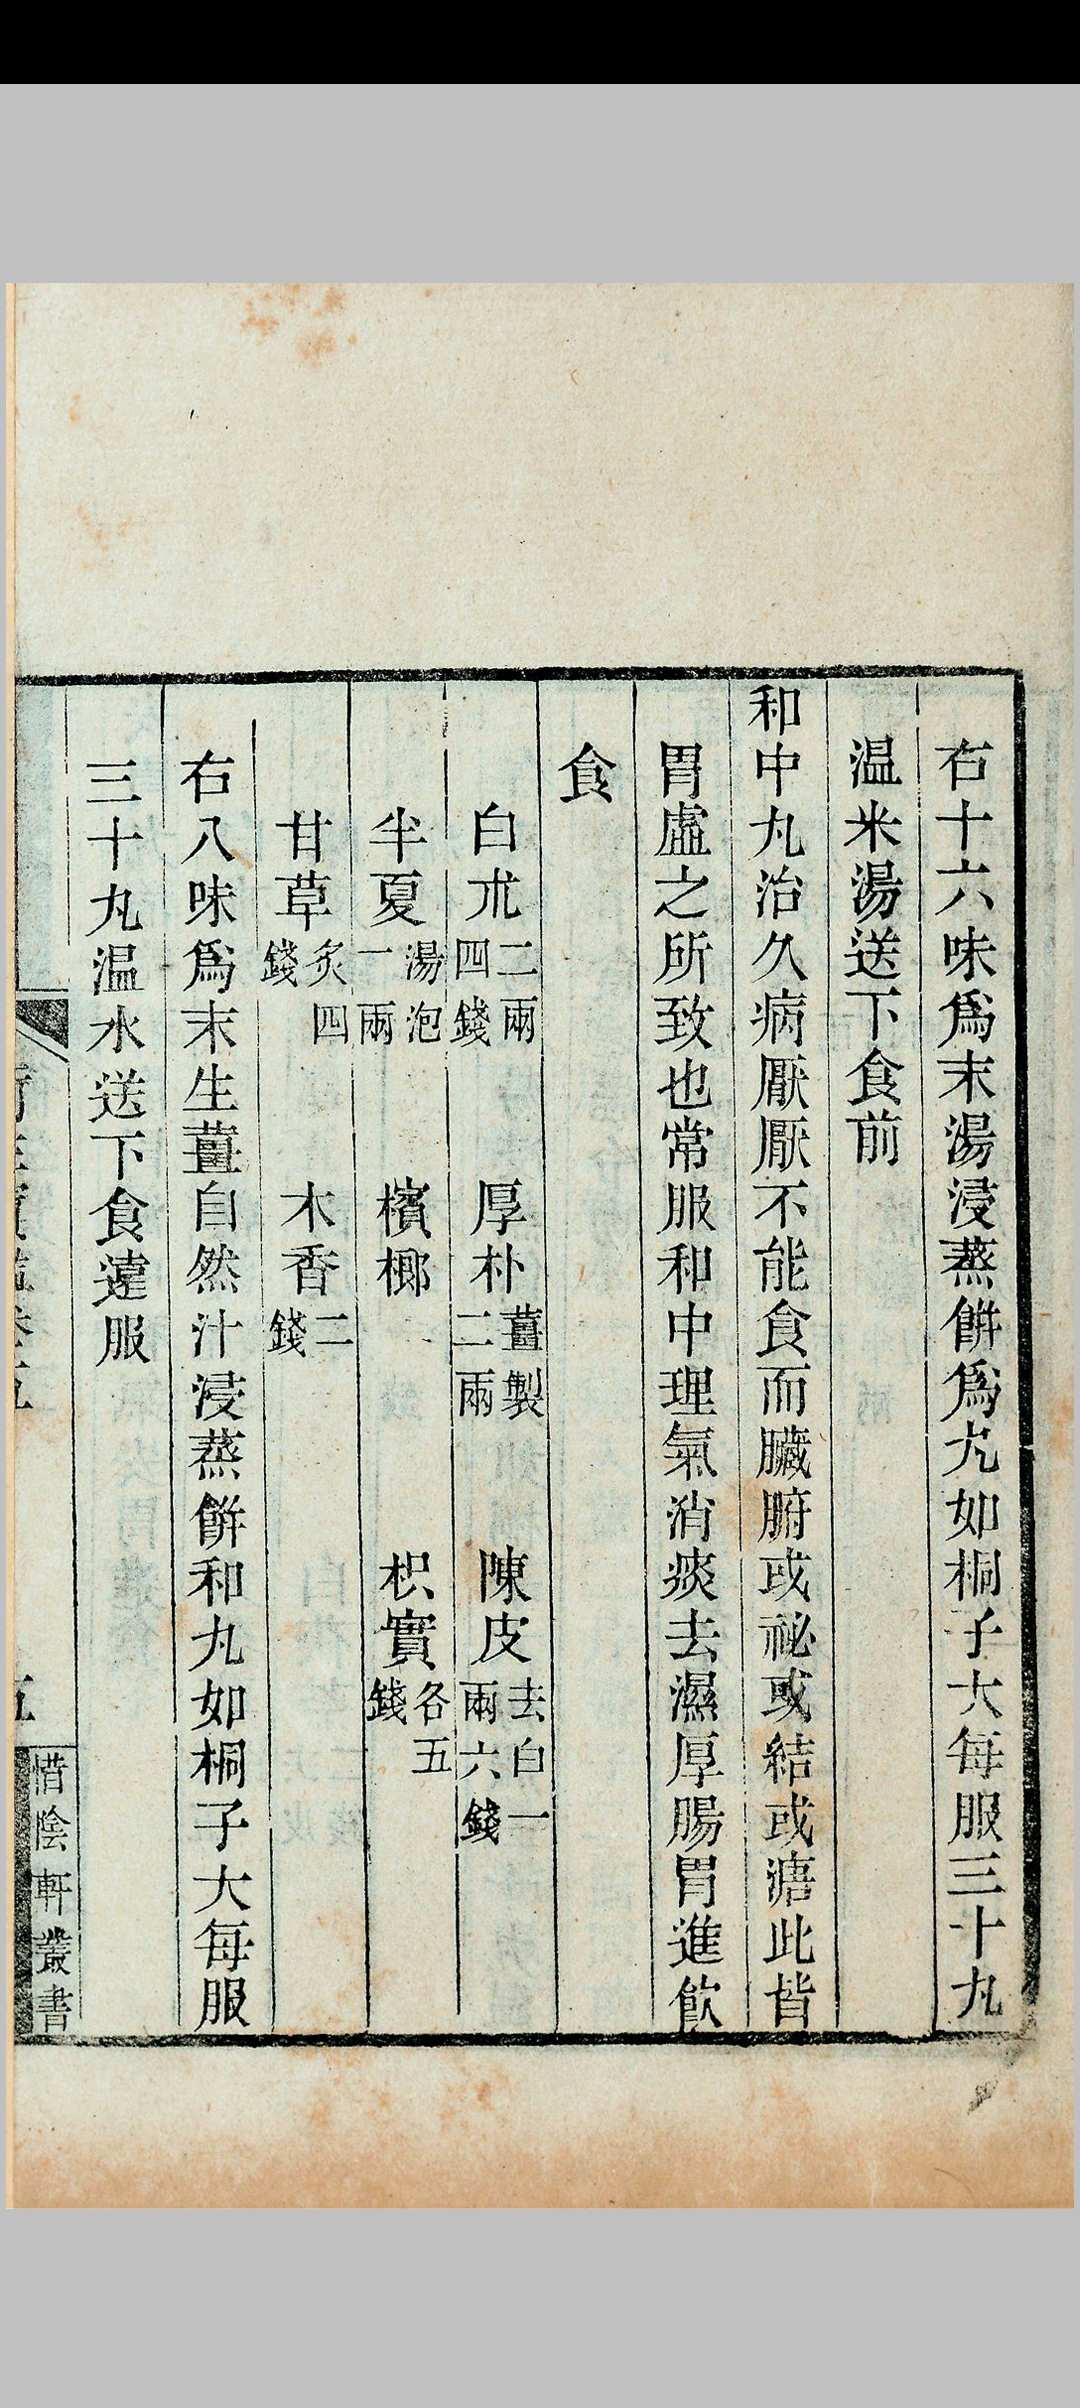 右十六味爲末湯浸蒸餠爲丸如桐子大每服三十丸
温米湯送下食前
和中丸治久病厭厭不能食而臟腑或祕或結或溏此皆
胃虛之所致也常服和中理氣消痰去濕厚腸胃進飮
食
白朮二兩四錢 厚朴薑製二兩 陳皮去白一兩六錢
半夏湯泡一兩 檳榔 枳實各五錢
甘草炙四錢 木香二錢
右八味爲末生薑自然汁浸蒸餠和丸如桐子大每服
三十丸温水送下食遠服
五
惜陰軒叢書